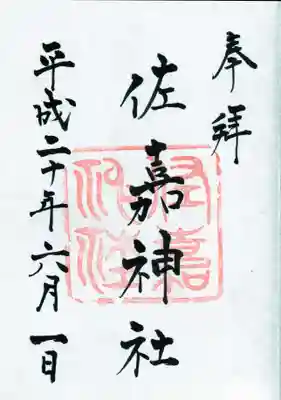 奉拝
佐嘉神社
平成二十年六月一日